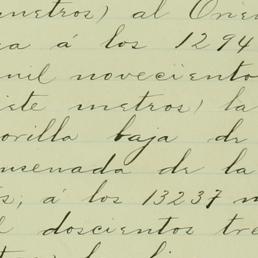 metros) al Orien
a á los 1294
mil noveciento
iete metros) la
orilla baja de
nsenada de la
s; á los 13237 m
doscientos tre